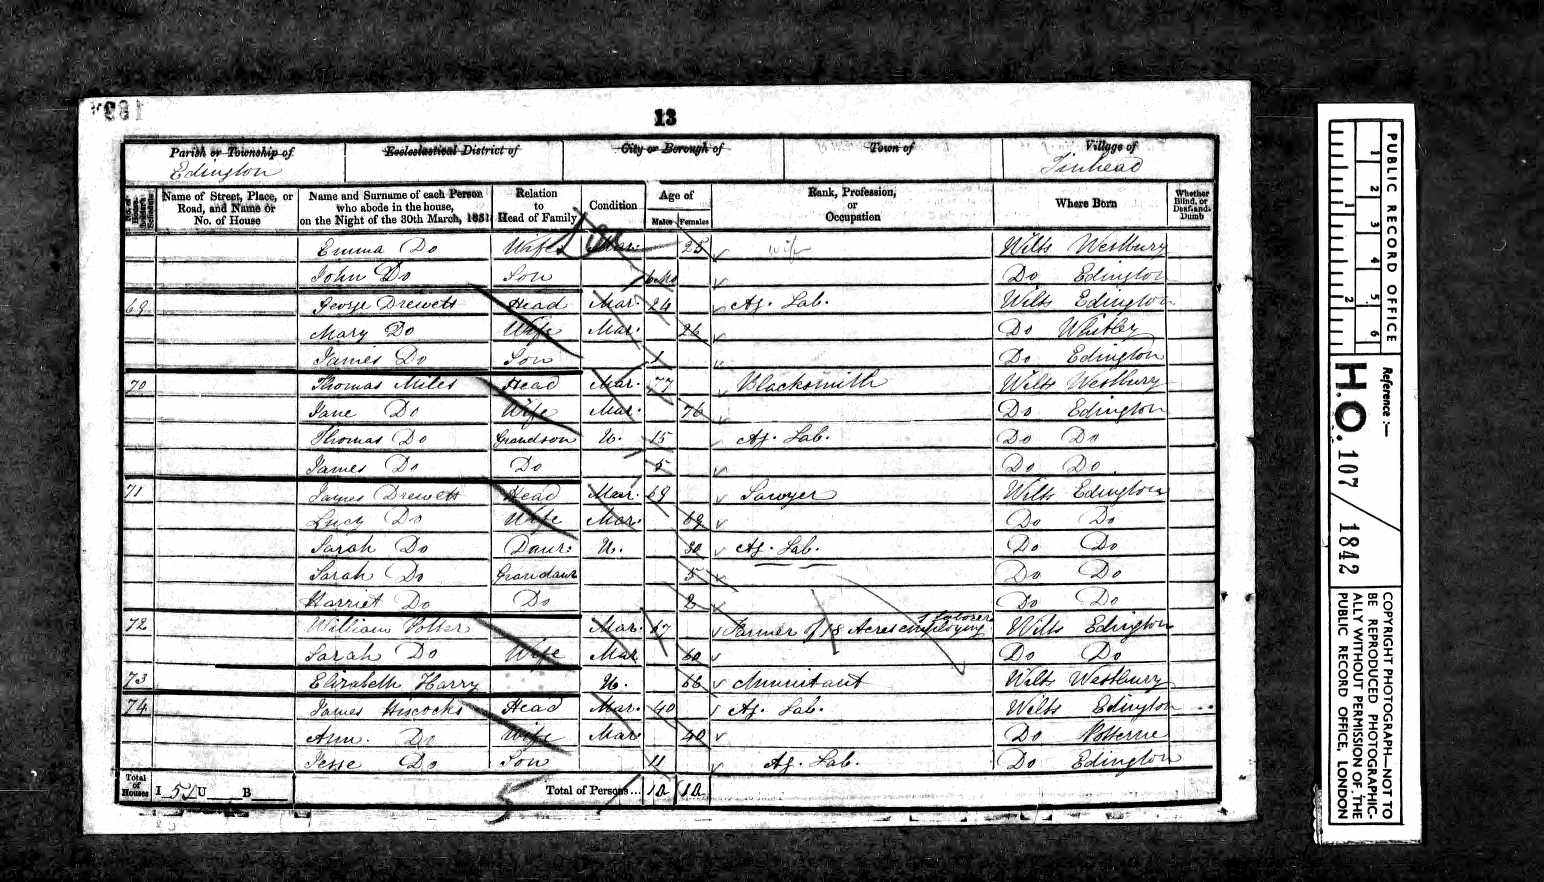 13
Parish or Township of Ecclesiastical District of City or Borough of Town of Village of
Edington Tinhead
Name of Street, Place, or Road, and Name or No. of House
Name and Surname of each Person who abode in the house, on the Night of the 30th March, 1851
Relation to Head of Family
Condition
Age of
Males Females
Rank, Profession, or Occupation
Where Born
Whether Blind, or Deaf-and-Dumb
Emma Do Wife Mar. 25 wife Wilts Westbury
John Do Son Do Edington
69 George Drewett Head Mar. 24 Ag. Lab. Wilts Edington
Mary Do Wife Mar. 24 Do
James Do Son 1 Do Edington
70 Thomas Miles Head Mar. 77 Blacksmith Wilts Westbury
Jane Do Wife Mar. 76 Do Edington
Thomas Do Grandson U. 15 Ag. Lab. Do Do
James Do Do 5 Do Do
71 James Drewett Head Mar. 69 Sawyer Wilts Edington
Lucy Do Wife Mar. 69 Do Do
Sarah Do Daur: U. 30 Ag. Lab. Do Do
Sarah Do Grandaur 5 Do Do
Harriet Do Do 2 Do Do
72 William Potter Mar. Farmer of 18 Acres employing 1 laborer Wilts Edington
Sarah Do Wife Mar 60 Do Do
73 Elizabeth Harry U. 66 Annuitant Wilts Westbury
74 James Hiscocks Head Mar. 40 Ag. Lab. Wilts Edington
Ann. Do Wife Mar 40 Do Potterne
Jesse Do Son 11 Ag. Lab. Do Edington
Total of Houses I U B Total of Persons... 10 10
5
PUBLIC RECORD OFFICE
1 2 3 4 5 6
1 2
Reference:—
H.O. 107 / 1842
COPYRIGHT PHOTOGRAPH—NOT TO BE REPRODUCED PHOTOGRAPHICALLY WITHOUT PERMISSION OF THE PUBLIC RECORD OFFICE, LONDON